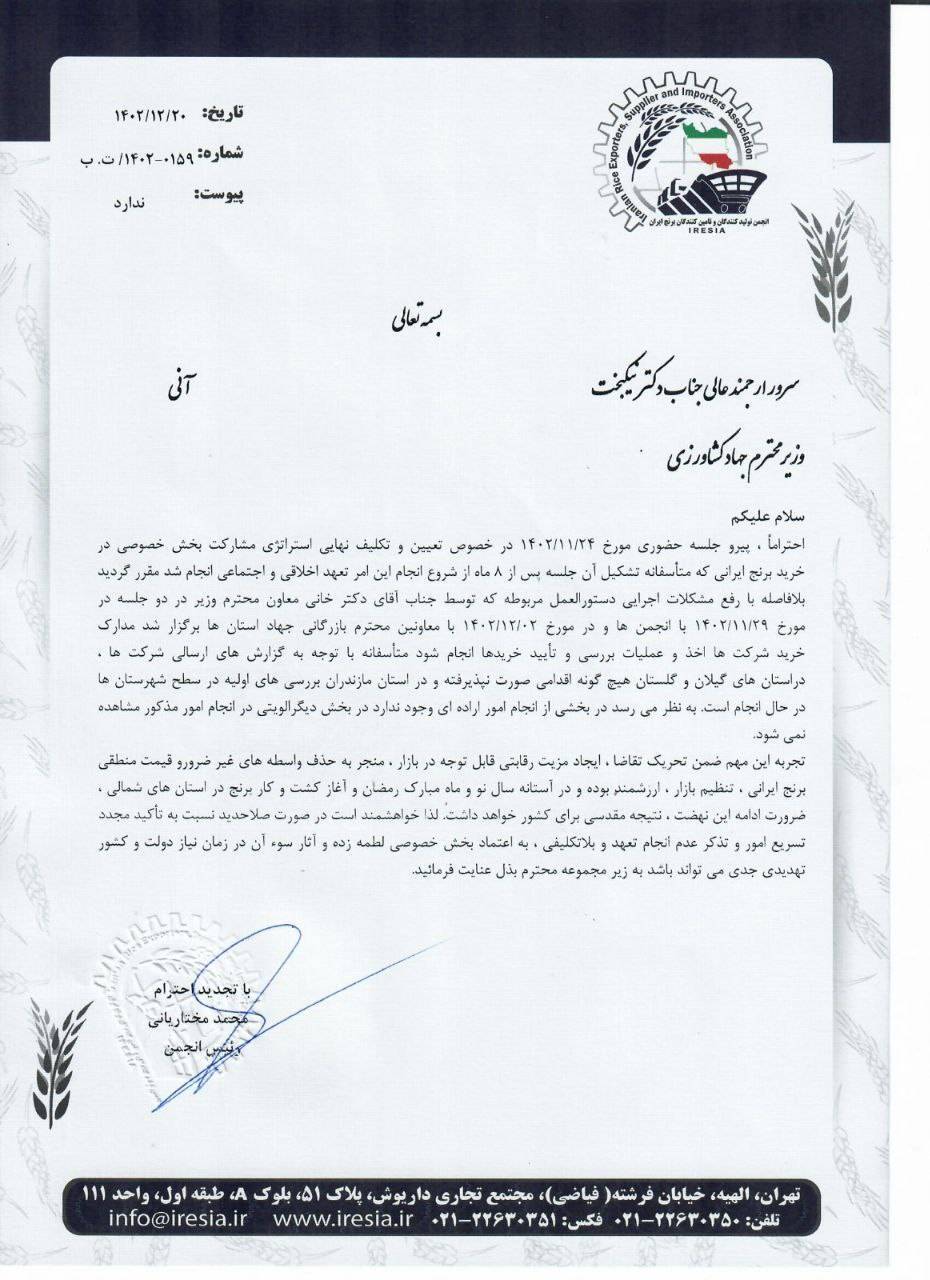 Iranian Rice Exporters, Supplier and Importers Association
انجمن تولید کنندگان و تامین کنندگان برنج ایران
IRESIA
تاریخ: ۱۴۰۲/۱۲/۲۰
شماره: ۱۴۰۲-۰۱۵۹/ ت. ب
پیوست: ندارد
بسمه تعالی
سرور ارجمند عالی جناب دکتر نیکبخت
آنی
وزیر محترم جهاد کشاورزی
سلام علیکم
احتراماً ، پیرو جلسه حضوری مورخ ۱۴۰۲/۱۱/۲۴ در خصوص تعیین و تکلیف نهایی استراتژی مشارکت بخش خصوصی در
خرید برنج ایرانی که متأسفانه تشکیل آن جلسه پس از ۸ ماه از شروع انجام این امر تعهد اخلاقی و اجتماعی انجام شد مقرر گردید
بلافاصله با رفع مشکلات اجرایی دستورالعمل مربوطه که توسط جناب آقای دکتر خانی معاون محترم وزیر در دو جلسه در
مورخ ۱۴۰۲/۱۱/۲۹ با انجمن ها و در مورخ ۱۴۰۲/۱۲/۰۲ با معاونین محترم بازرگانی جهاد استان ها برگزار شد مدارک
خرید شرکت ها اخذ و عملیات بررسی و تأیید خریدها انجام شود متأسفانه با توجه به گزارش های ارسالی شرکت ها ،
دراستان های گیلان و گلستان هیچ گونه اقدامی صورت نپذیرفته و در استان مازندران بررسی های اولیه در سطح شهرستان ها
در حال انجام است. به نظر می رسد در بخشی از انجام امور اراده ای وجود ندارد در بخش دیگرالویتی در انجام امور مذکور مشاهده
نمی شود.
تجربه این مهم ضمن تحریک تقاضا ، ایجاد مزیت رقابتی قابل توجه در بازار ، منجر به حذف واسطه های غیر ضرورو قیمت منطقی
برنج ایرانی ، تنظیم بازار ، ارزشمند بوده و در آستانه سال نو و ماه مبارک رمضان و آغاز کشت و کار برنج در استان های شمالی ،
ضرورت ادامه این نهضت ، نتیجه مقدسی برای کشور خواهد داشت. لذا خواهشمند است در صورت صلاحدید نسبت به تأکید مجدد
تسریع امور و تذکر عدم انجام تعهد و بلاتکلیفی ، به اعتماد بخش خصوصی لطمه زده و آثار سوء آن در زمان نیاز دولت و کشور
تهدیدی جدی می تواند باشد به زیر مجموعه محترم بذل عنایت فرمائید.
با تجدید احترام
محمد مختاریانی
رئیس انجمن
تهران، الهیه، خیابان فرشته( فیاضی)، مجتمع تجاری داریوش، پلاک ۵۱، بلوک A، طبقه اول، واحد ۱۱۱
تلفن: ۲۲۶۳۰۳۵۰-۰۲۱ فکس: ۲۲۶۳۰۳۵۱-۰۲۱ www.iresia.ir info@iresia.ir